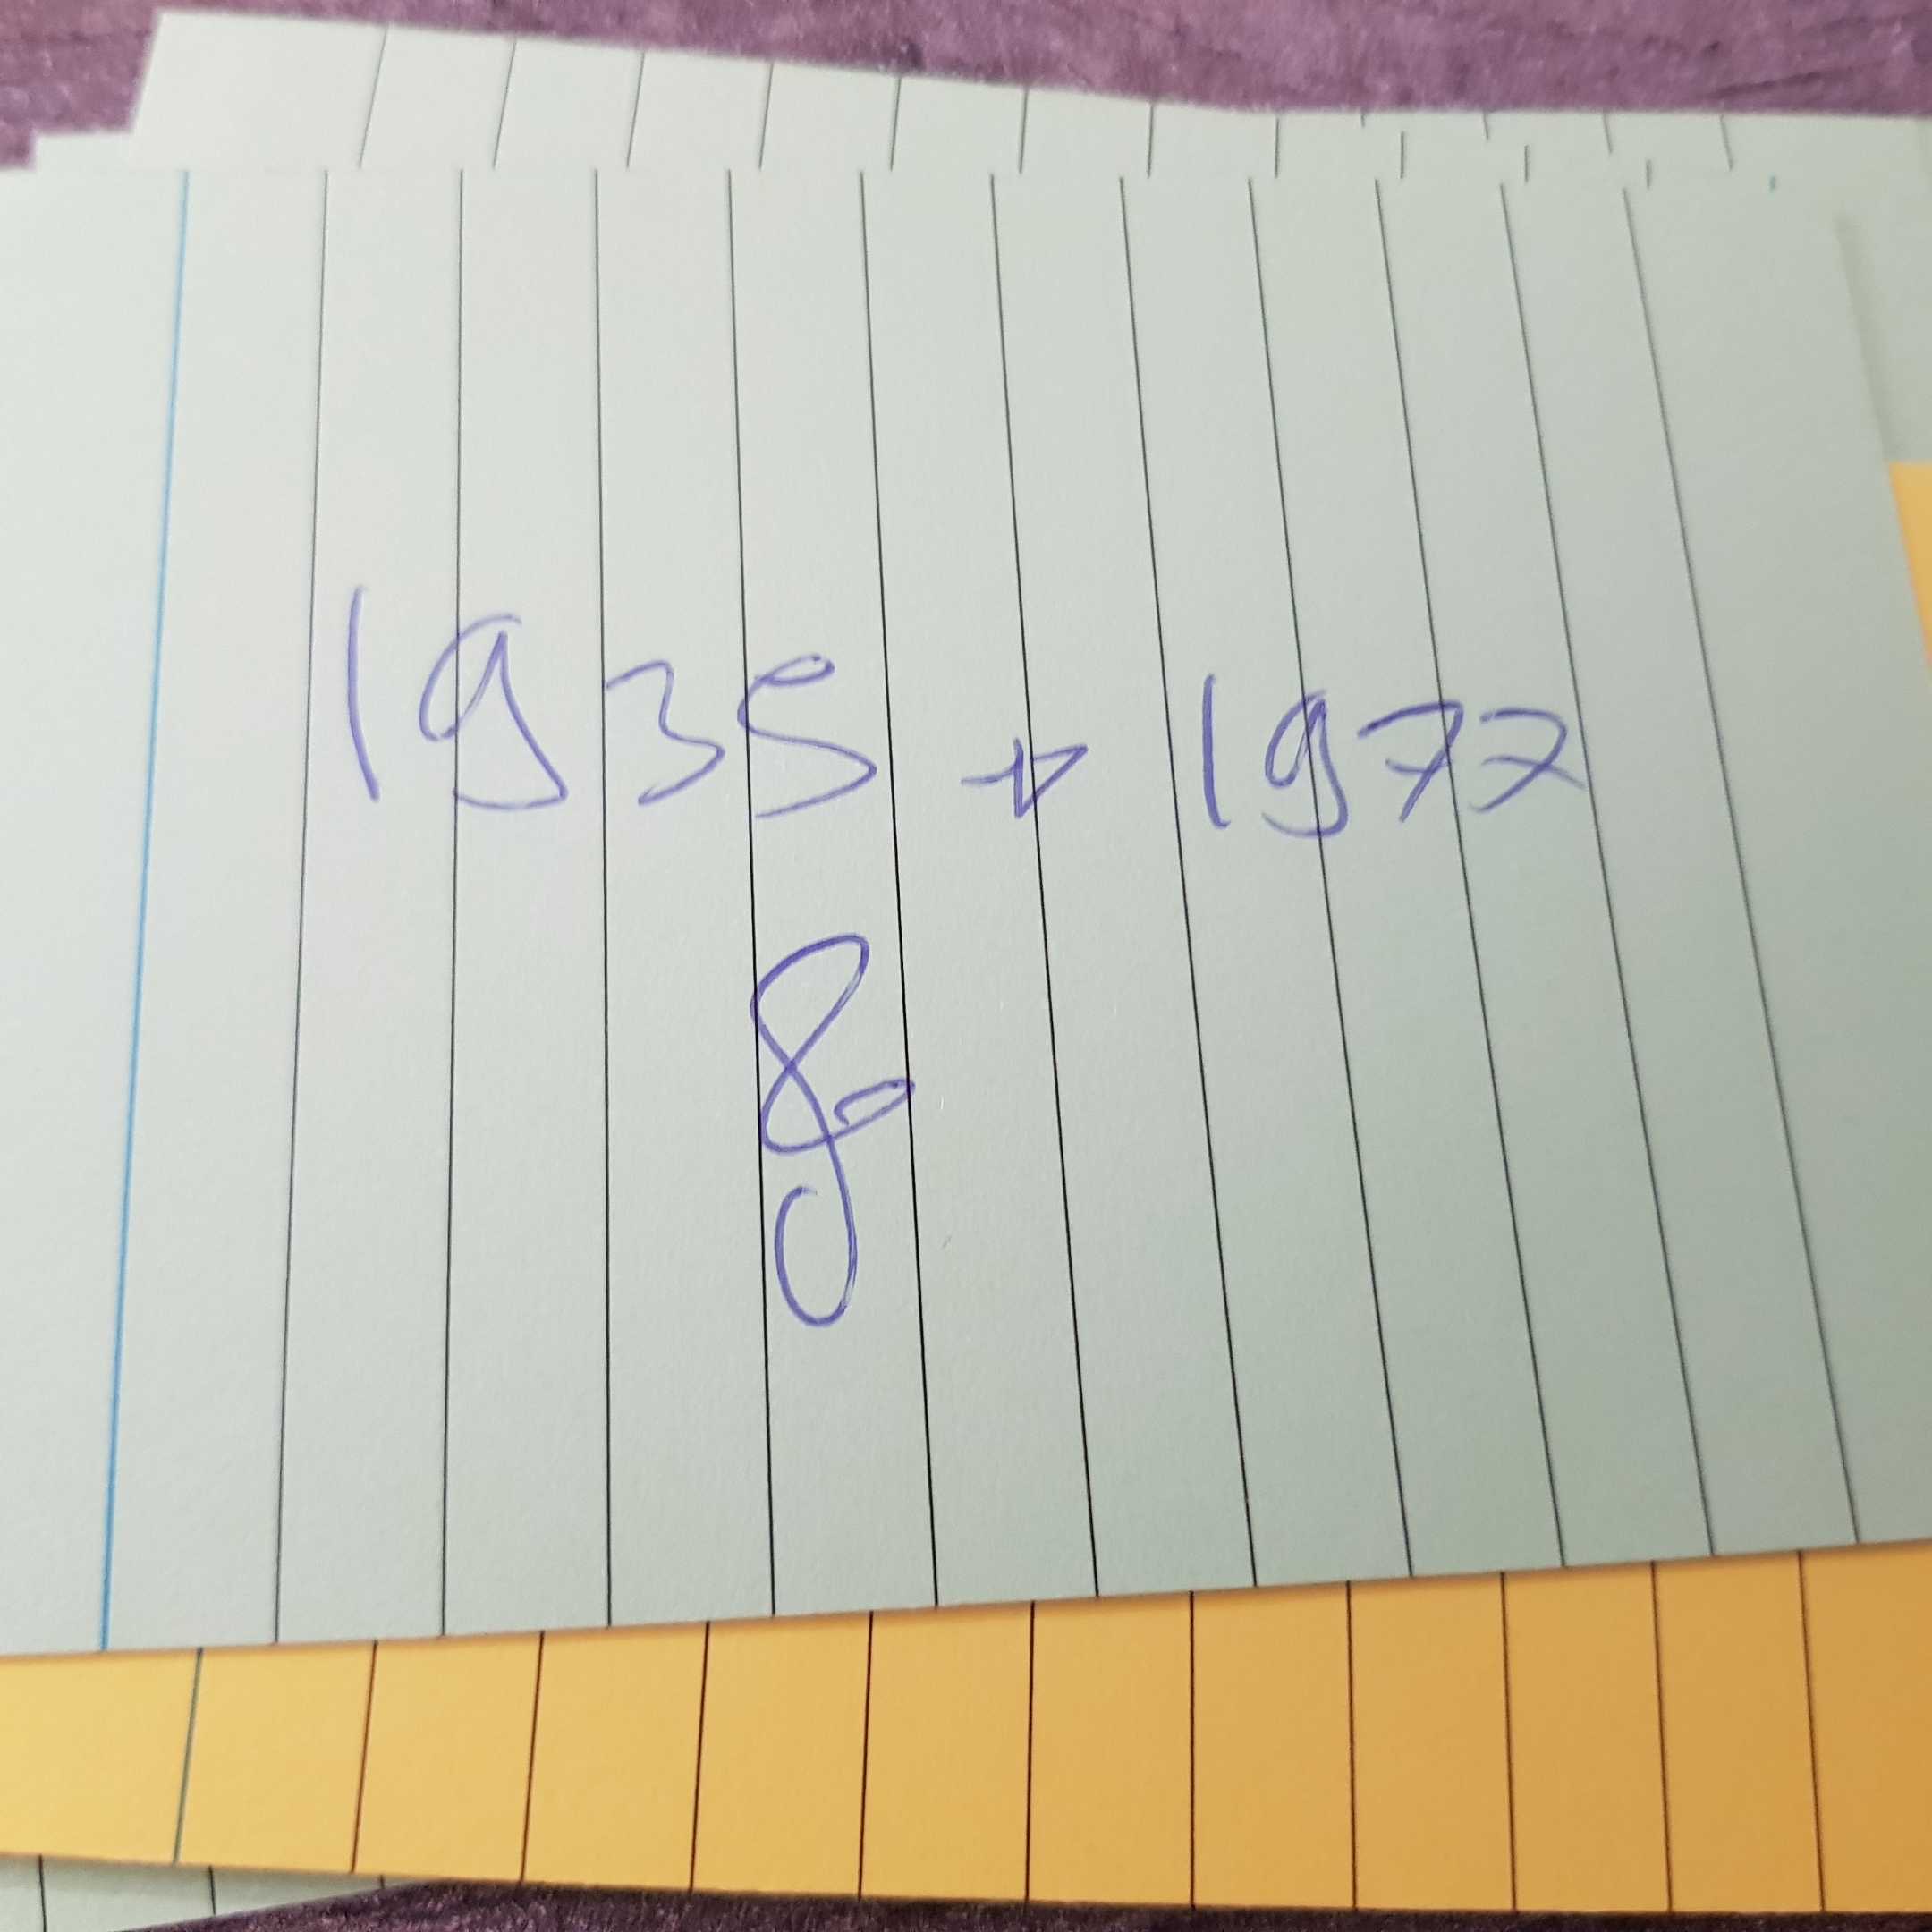 1935 + 1977